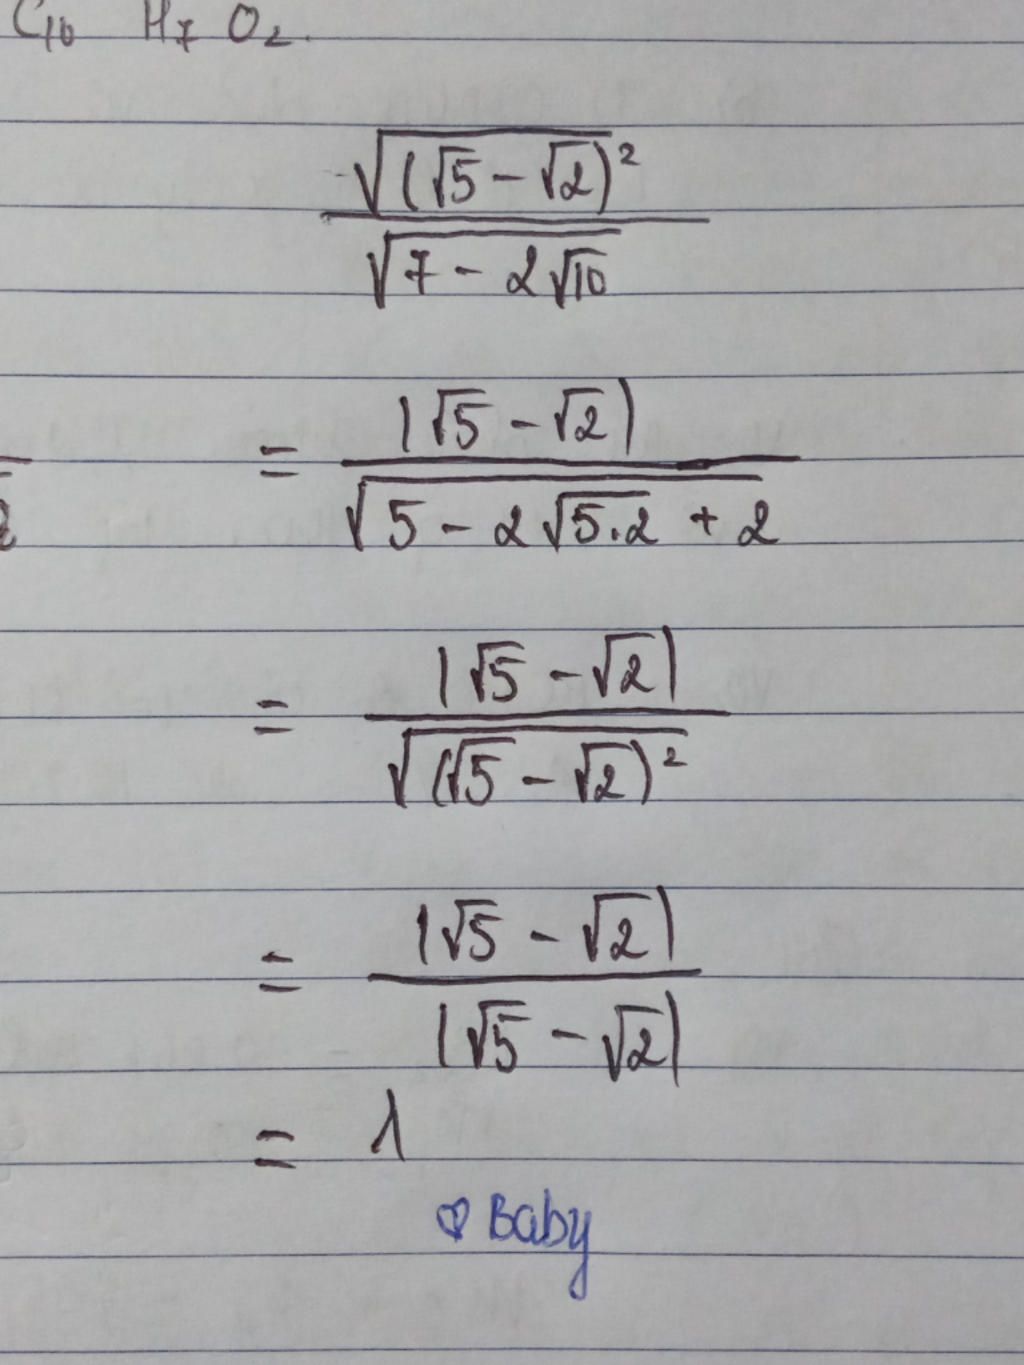 C₁₀ H₇ O₂.
√(√5 − √2)²
√7 − 2√10
= |√5 − √2|
√5 − 2√5.2 + 2
= |√5 − √2|
√(√5 − √2)²
= |√5 − √2|
|√5 − √2|
= 1
♡ Baby